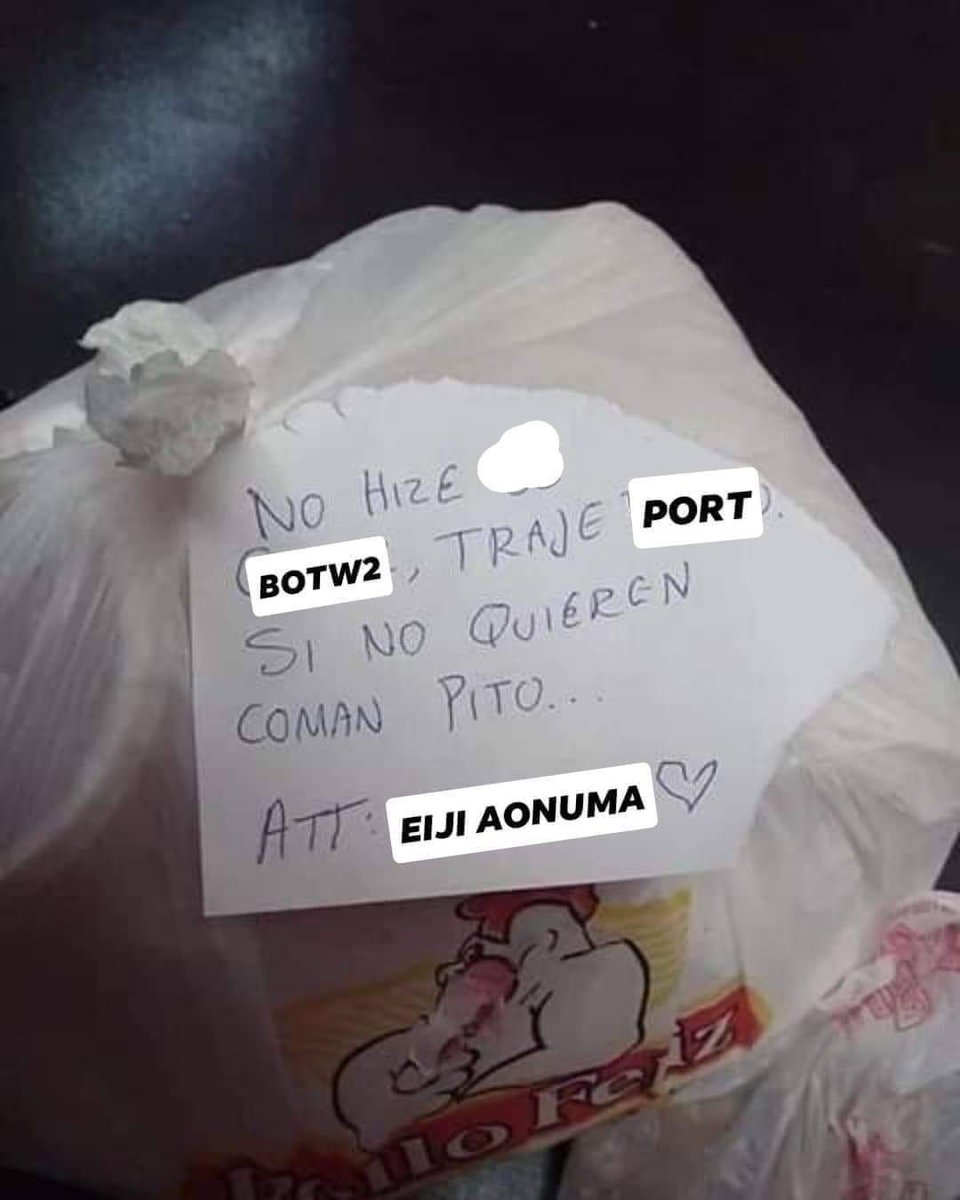 NO HIZE
BOTW2, TRAJE PORT.
SI NO QUIEREN
COMAN PITO...
ATT: EIJI AONUMA ♡
Feliz